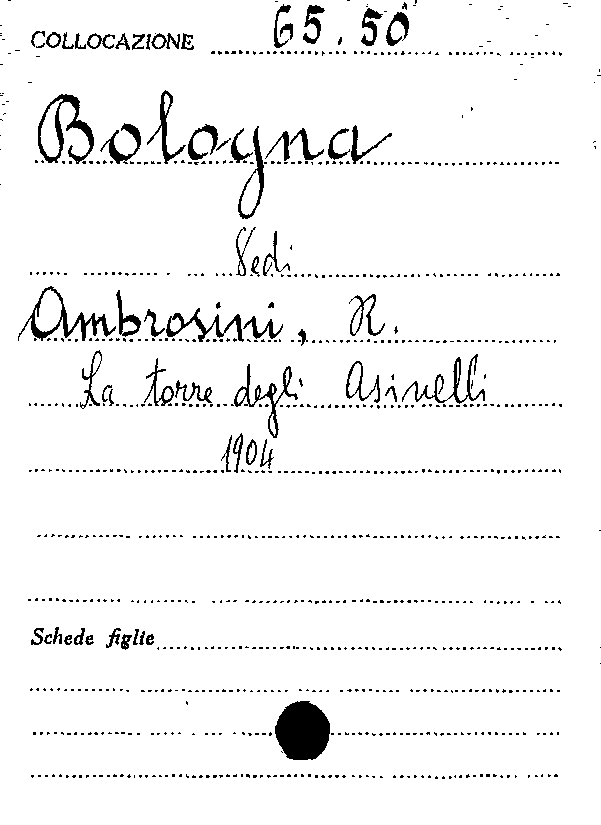 COLLOCAZIONE 65.50
Bologna
Vedi
Ambrosini, R.
La torre degli Asinelli
1904
Schede figlie